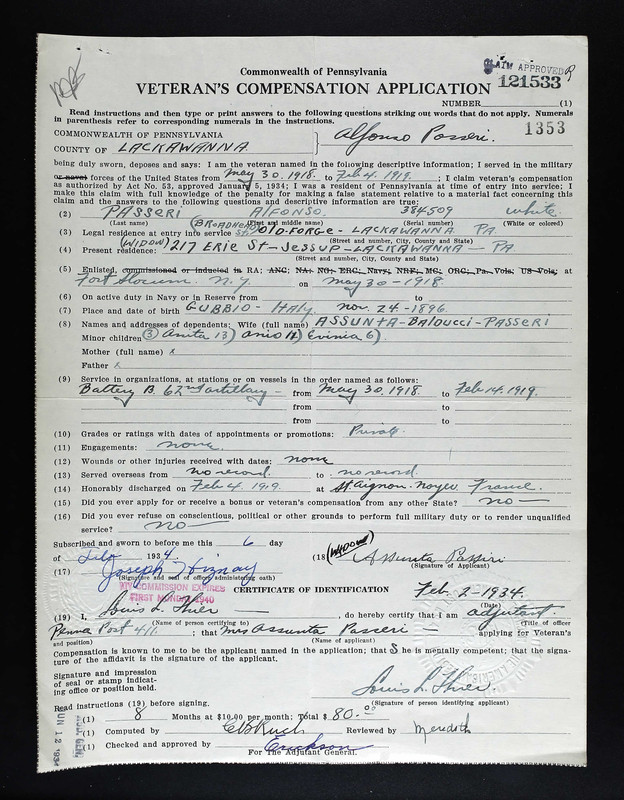 Commonwealth of Pennsylvania
CLAIM APPROVED
VETERAN'S COMPENSATION APPLICATION 121533
NUMBER (1)
Read instructions and then type or print answers to the following questions striking out words that do not apply. Numerals
in parenthesis refer to corresponding numerals in the instructions.
1353
COMMONWEALTH OF PENNSYLVANIA
COUNTY OF LACKAWANNA
Alfonso Passeri.
being duly sworn, deposes and says: I am the veteran named in the following descriptive information; I served in the military
or naval forces of the United States from May 30. 1918. to Feb 4. 1919.; I claim veteran's compensation
as authorized by Act No. 53, approved January 5, 1934; I was a resident of Pennsylvania at time of entry into service; I
make this claim with full knowledge of the penalty for making a false statement relative to a material fact concerning this
claim and the answers to the following questions and descriptive information:
(2) PASSERI ALFONSO. 384509 white
(Last name) (First and middle name) (Serial number) (White or colored)
(3) Legal residence at entry into service (BROADHEAD St) OLD FORGE - LACKAWANNA PA.
(Street and number, City, County and State)
(4) Present residence: (WIDOW) 217 ERIE St - JESSUP - LACKAWANNA - PA
(Street and number, City, County and State)
(5) Enlisted, commissioned or inducted in RA; ANC; NA; NG; ERC; Navy; NRF; MC; ORC; Pa. Vols; US Vols; at
Fort Slocum. N.Y. on May 30 - 1918
(6) On active duty in Navy or in Reserve from to
(7) Place and date of birth GUBBIO - ITALY. Nov. 24 - 1896.
(8) Names and addresses of dependents: Wife (full name) ASSUNTA - BALDUCCI - PASSERI
Minor children (3) Anita 13) 6)
Mother (full name) x
Father x
(9) Service in organizations, at stations or on vessels in the order named as follows:
Battery B. 62nd artillary - from May 30, 1918. to Feb 14. 1919.
from to
from to
(10) Grades or ratings with dates of appointments or promotions:
(11) Engagements: none.
(12) Wounds or other injuries received with dates: none
(13) Served overseas from no record. to no record.
(14) Honorably discharged on Feb 4. 1919. at St Aignon - Noyer France.
(15) Did you ever apply for or receive a bonus or veteran's compensation from any other State? no -
(16) Did you ever refuse on conscientious, political or other grounds to perform full military duty or to render unqualified
service? no -
Subscribed and sworn to before me this 6 day
of 1934. (18) (WIDOW) Assunta Passeri
(Signature of Applicant)
(17) Joseph Hiznay
(Signature and seal of officer administering oath)
MY COMMISSION EXPIRES
FIRST MONDAY 1940
CERTIFICATE OF IDENTIFICATION Feb. 2 - 1934.
(Date)
(19) I, Louis L. , do hereby certify that I am adjutant.
(Name of person certifying to) (Title of officer
Penna Post 411. ; that Mrs Assunta Passeri - applying for Veteran's
and position) (Name of applicant)
Compensation is known to me to be the applicant named in the application; that S he is mentally competent; that the signa-
ture of the affidavit is the signature of the applicant.
Signature and impression
of seal or stamp indicat-
ing office or position held.
Louis L.
(Signature of person identifying applicant)
Read instructions (19) before signing.
(1) 8 Months at $10.00 per month; Total $ 80.00
(1) Computed by Reviewed by Meredith
(1) Checked and approved by Erickson
For The Adjutant General.
JUN 12 1934